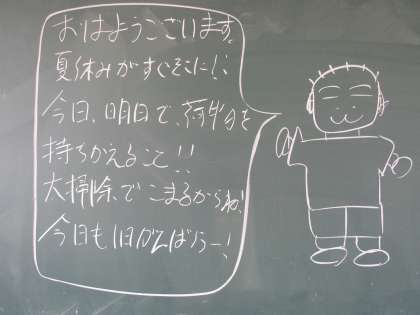 おはようございます。
夏休みがすぐそこに!!
今日、明日で、荷物を
持ちかえること!!
大掃除でこまるからね!
今日も1日がんばろう!